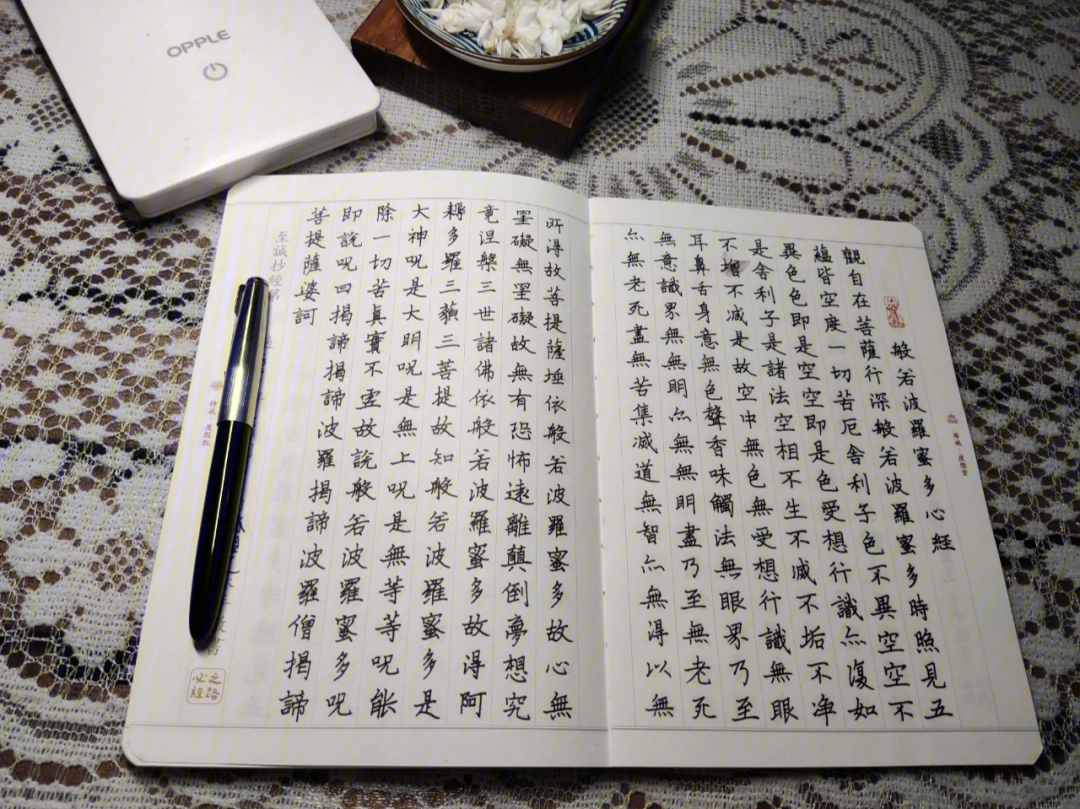 般若波羅蜜多心經
觀自在菩薩行深般若波羅蜜多時照見五
蘊皆空度一切苦厄舍利子色不異空空不
異色色即是空空即是色受想行識亦復如
是舍利子是諸法空相不生不滅不垢不净
不增不减是故空中無色無受想行識無眼
耳鼻舌身意無色聲香味觸法無眼界乃至
無意識界無無明亦無無明盡乃至無老死
亦無老死盡無苦集滅道無智亦無得以無
所得故菩提薩埵依般若波羅蜜多故心無
罣礙無罣礙故無有恐怖遠離顛倒夢想究
竟涅槃三世諸佛依般若波羅蜜多故得阿
耨多羅三藐三菩提故知般若波羅蜜多是
大神呪是大明呪是無上呪是無等等呪能
除一切苦真實不虛故說般若波羅蜜多呪
即說呪曰揭諦揭諦波羅揭諦波羅僧揭諦
菩提薩婆訶
至誠抄經第
必經之路
OPPLE